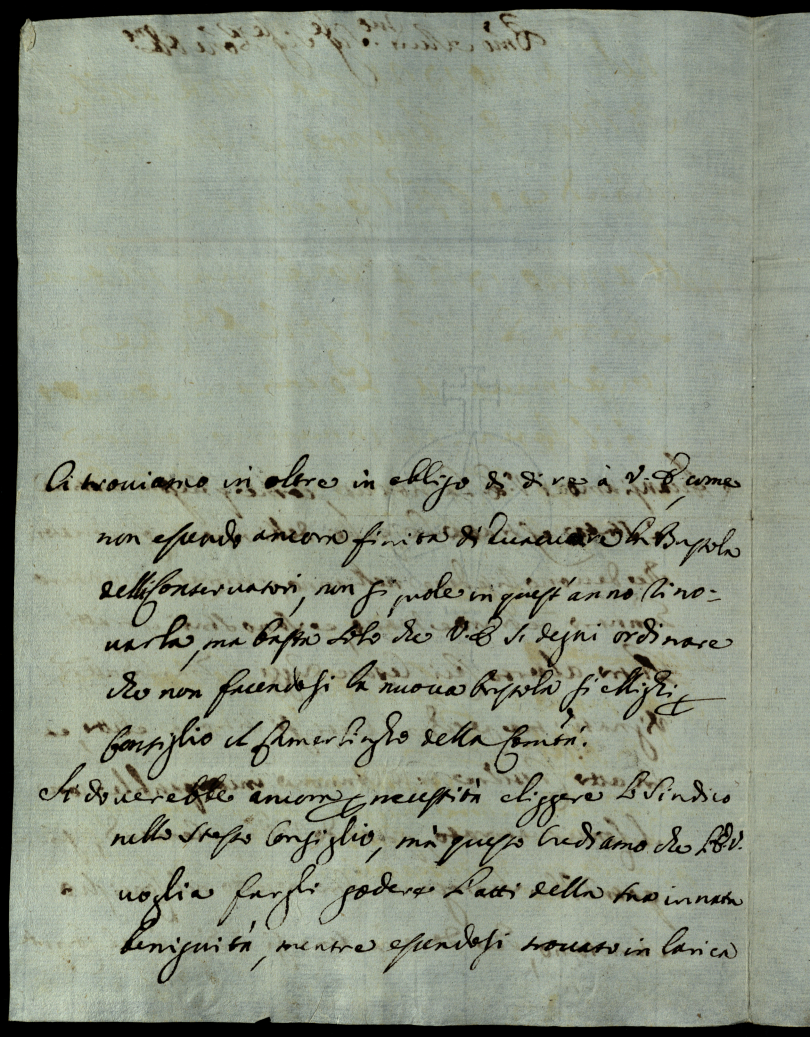 Ci troviamo in oltre in obligo di dire à V.E, come
non essendo ancora finita di la Bussola
delli Conservatori, non si puole in quest'anno rino=
varla, ma basta solo che V.E si degni ordinare
che non facendosi la nuova bussola si
Consiglio il Camerlingho della Comtà.
Si doverebbe ancora necessità eliggere Lo Sindico
nello stesso Consiglio, mà questo crediamo che
voglia fargli godere L'atti della sua innata
benignità, mentre essendosi trovato in Carica